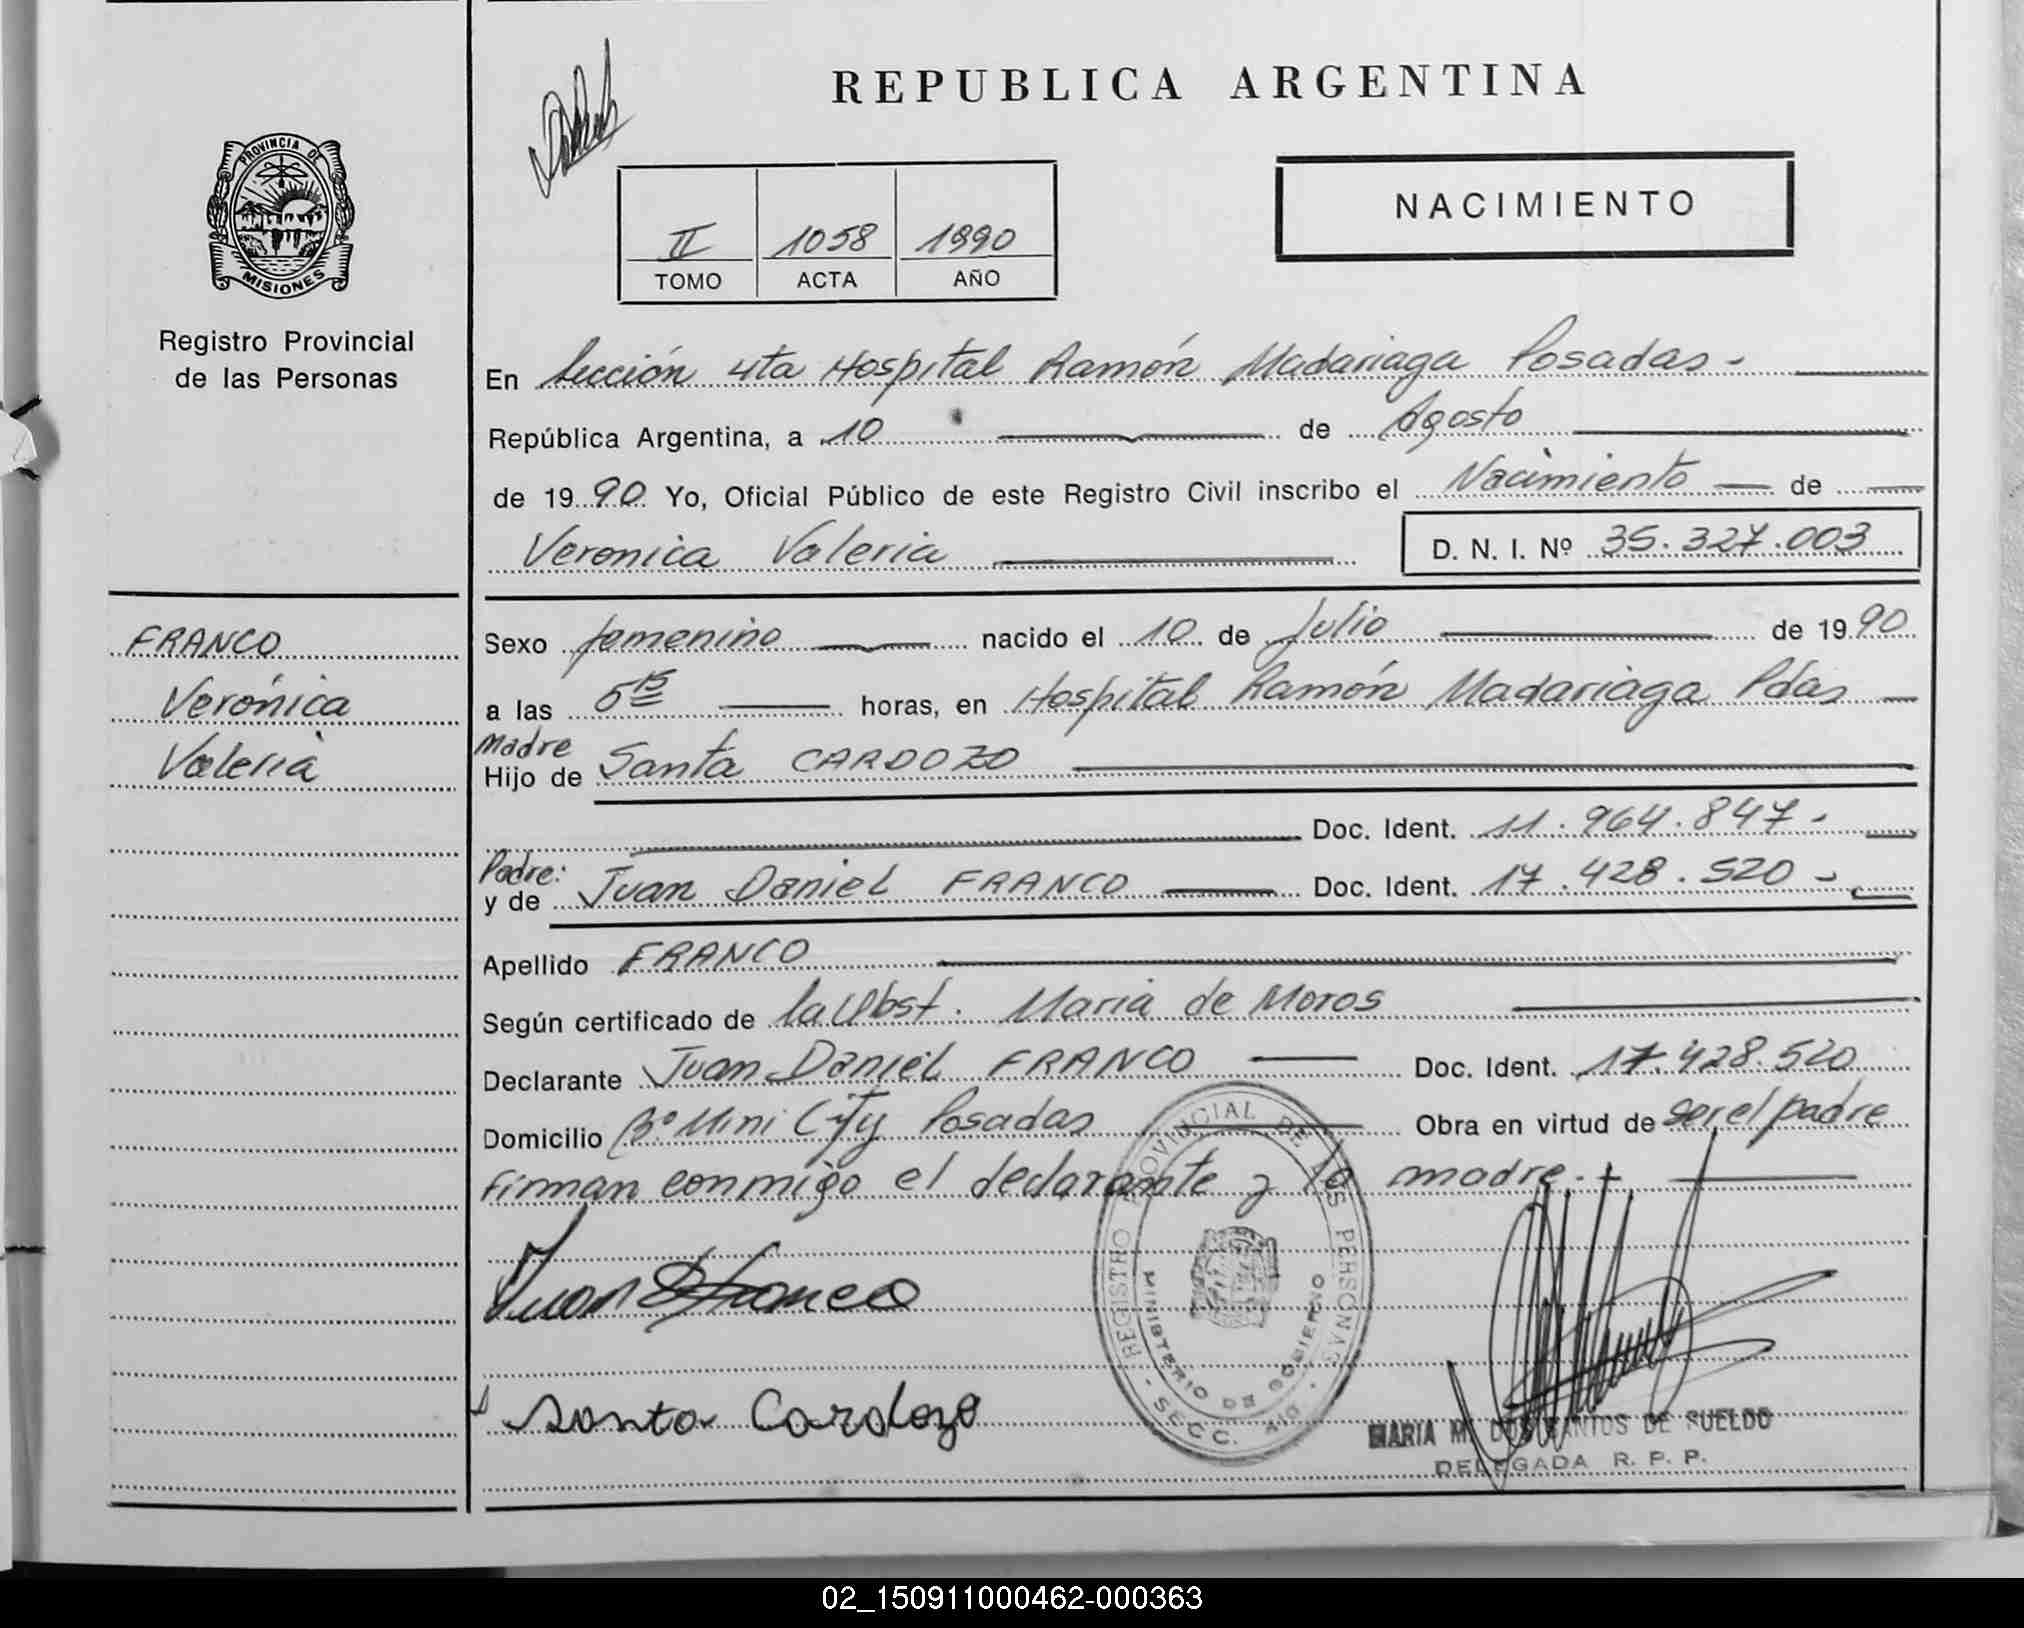 REPUBLICA ARGENTINA
PROVINCIA DE
MISIONES
Registro Provincial
de las Personas
II 1058 1990
TOMO ACTA AÑO
NACIMIENTO
En Sección 4ta Hospital Ramón Madariaga Posadas.-
República Argentina, a 10 de Agosto
de 1990 Yo, Oficial Público de este Registro Civil inscribo el Nacimiento de
Veronica Valeria D. N. I. Nº 35.327.003
FRANCO
Verónica
Valeria
Sexo femenino nacido el 10 de Julio de 1990
a las 5 15 horas, en Hospital Ramón Madariaga Pdas
Madre
Hijo de Santa CARDOZO
Doc. Ident. 11.964.847.-
Padre:
y de Juan Daniel FRANCO Doc. Ident. 17.428.520-
Apellido FRANCO
Según certificado de la Obst. Maria de Moros
Declarante Juan Daniel FRANCO Doc. Ident. 17.428.520
Domicilio Bº Mini City Posadas Obra en virtud de ser el padre
Firman conmigo el declarante y la madre.-
Juan D Franco
Santa Cardozo
REGISTRO PROVINCIAL DE LAS PERSONAS
MINISTERIO DE GOBIERNO
SECC. 4ta.
MARIA M. DOS SANTOS DE SUELDO
DELEGADA R. P. P.
02_150911000462-000363